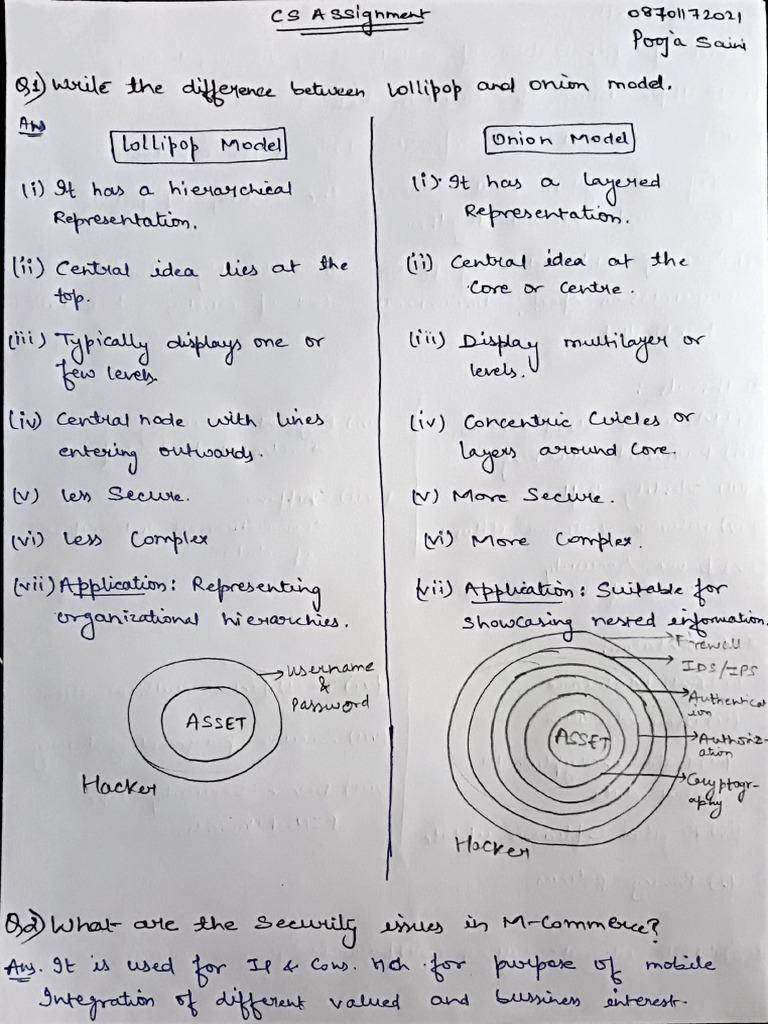 CS Assignment
08701172021
Pooja Saini
Q1) Write the difference between lollipop and onion model.
Ans
Lollipop Model
(i) It has a hierarchical
Representation.
(ii) Central idea lies at the
top.
(iii) Typically displays one or
few levels.
(iv) Central node with lines
entering outwards.
(v) less Secure.
(vi) Less Complex
(vii) Application: Representing
organizational hierarchies.
ASSET
Username
&
Password
Hacker
Onion Model
(i) It has a layered
Representation.
(ii) Central idea at the
Core or centre.
(iii) Display multilayer or
levels.
(iv) Concentric Circles or
layers around core.
(v) More Secure.
(vi) More Complex.
(vii) Application: Suitable for
showcasing nested information.
Firewall
IDS/IPS
Authenticat
ion
Authoriz-
ation
Cryptogr-
aphy
ASSET
Hacker
Q2) What are the Security issues in M-Commerce?
Ans. It is used for & Cons. for purpose of mobile
Integration of different valued and bussiness interest.